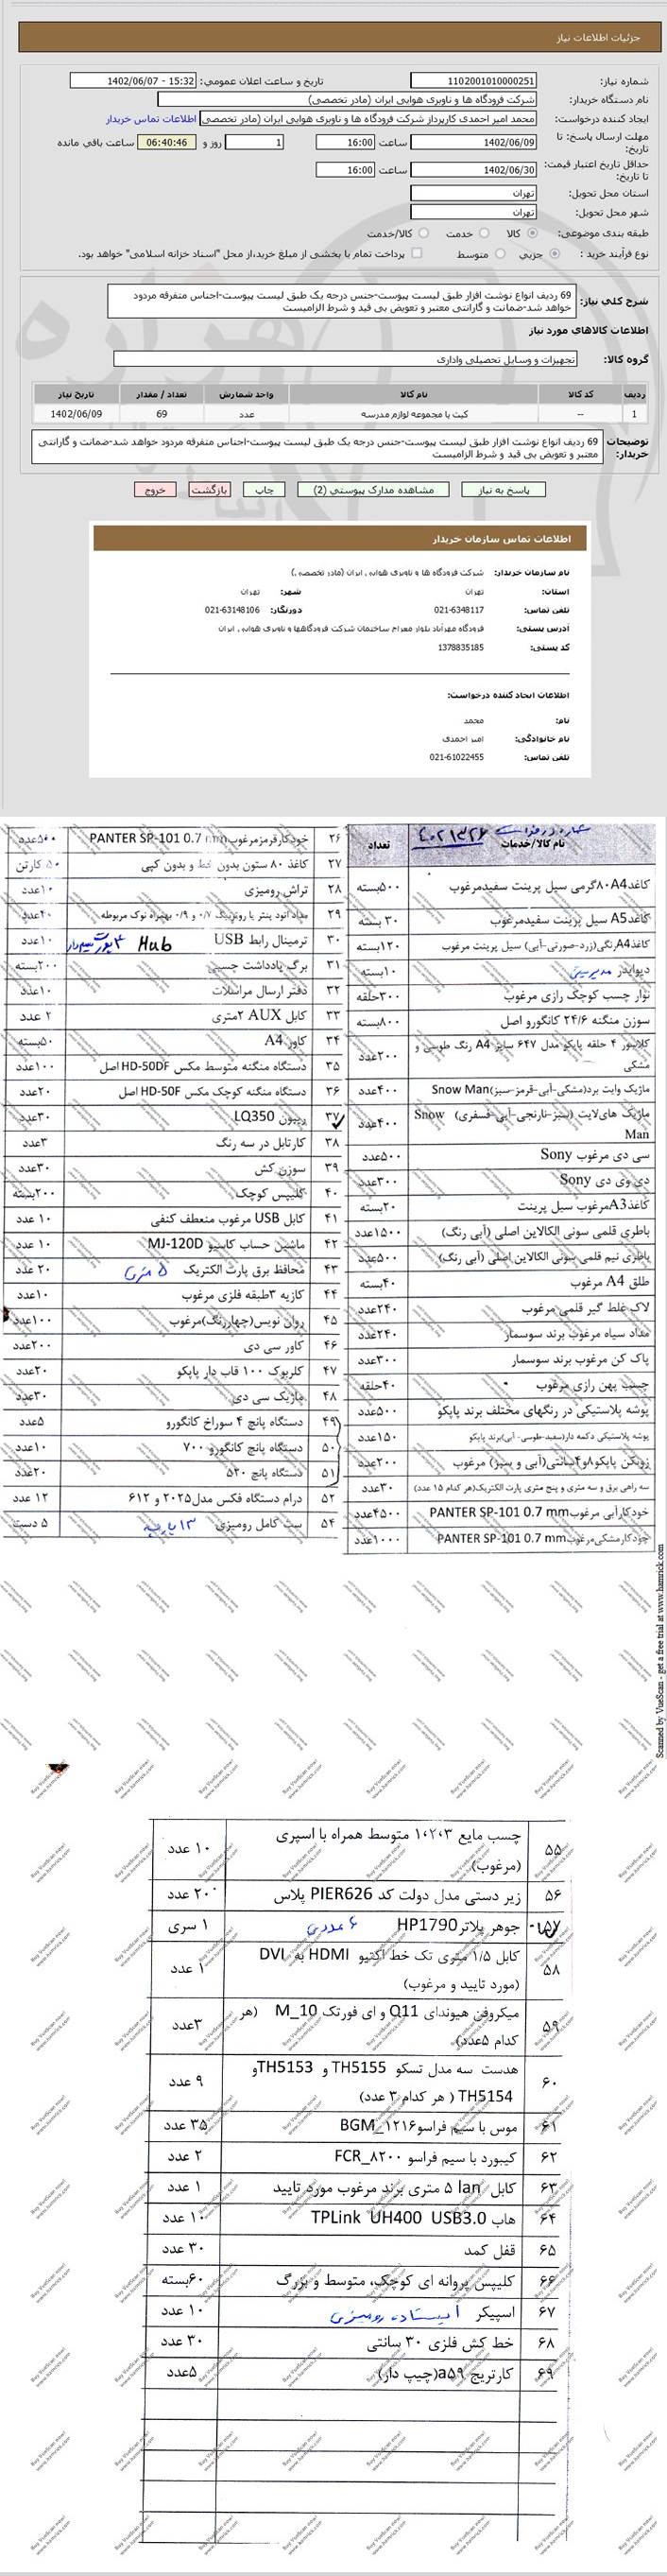 جزئیات اطلاعات نیاز
شماره نیاز: 1102001010000251
تاریخ و ساعت اعلان عمومی: 1402/06/07 - 15:32
نام دستگاه خریدار: شرکت فرودگاه ها و ناوبری هوایی ایران (مادر تخصصی)
ایجاد کننده درخواست: محمد امیر احمدی کارپرداز شرکت فرودگاه ها و ناوبری هوایی ایران (مادر تخصصی) اطلاعات تماس خریدار
مهلت ارسال پاسخ: تا تاریخ: 1402/06/09 ساعت 16:00 1 روز و 06:40:46 ساعت باقي مانده
حداقل تاریخ اعتبار قیمت: تا تاریخ: 1402/06/30 ساعت 16:00
استان محل تحویل: تهران
شهر محل تحویل: تهران
طبقه بندی موضوعی: کالا خدمت کالا/خدمت
نوع فرآیند خرید : جزیي متوسط پرداخت تمام یا بخشی از مبلغ خرید،از محل "اسناد خزانه اسلامی" خواهد بود.
شرح کلي نیاز: 69 ردیف انواع نوشت افزار طبق لیست پیوست-جنس درجه یک طبق لیست پیوست-اجناس متفرقه مردود
خواهد شد-ضمانت و گارانتی معتبر و تعویض بی قید و شرط الزامیست
اطلاعات کالاهاي مورد نیاز
گروه کالا: تجهیزات و وسایل تحصیلی واداری
ردیف کد کالا نام کالا واحد شمارش تعداد / مقدار تاریخ نیاز
1 -- کیت یا مجموعه لوازم مدرسه عدد 69 1402/06/09
توضیحات خریدار: 69 ردیف انواع نوشت افزار طبق لیست پیوست-جنس درجه یک طبق لیست پیوست-اجناس متفرقه مردود خواهد شد-ضمانت و گارانتی
معتبر و تعویض بی قید و شرط الزامیست
پاسخ به نیاز مشاهده مدارک پیوستي (2) چاپ بازگشت خروج
اطلاعات تماس سازمان خریدار
نام سازمان خریدار: شرکت فرودگاه ها و ناوبری هوایی ایران (مادر تخصصی)
استان: تهران شهر: تهران
تلفن تماس: 021-6348117 دورنگار: 021-63148106
آدرس پستی: فرودگاه مهرآباد بلوار معراج ساختمان شرکت فرودگاهها و ناوبری هوایی ایران
کد پستی: 1378835185
اطلاعات ایجاد کننده درخواست:
نام: محمد
نام خانوادگی: امیر احمدی
تلفن تماس: 021-61022455
نام کالا/خدمات تعداد
کاغذA4 ۸۰گرمی سیل پرینت سفیدمرغوب ۵۰۰بسته
کاغذA5 سیل پرینت سفیدمرغوب ۳۰ بسته
کاغذA4رنگی(زرد-صورتی-آبی) سیل پرینت مرغوب ۱۲۰بسته
دیوایدر مدیریتی ۱۰بسته
نوار چسب کوچک رازی مرغوب ۳۰۰حلقه
سوزن منگنه ۲۴/۶ کانگورو اصل ۸۰۰بسته
کلاسور ۴ حلقه پاپکو مدل ۶۴۷ سایز A4 رنگ طوسی و مشکی ۲۰۰عدد
ماژیک وایت برد(مشکی-آبی-قرمز-سبز)Snow Man ۴۰۰عدد
ماژیک های‌لایت (سبز-نارنجی-آبی-فسفری) Snow Man ۴۰۰عدد
سی دی مرغوب Sony ۵۰۰عدد
دی وی دی Sony ۳۰۰عدد
کاغذA3مرغوب سیل پرینت ۲۰بسته
باطری قلمی سونی الکالاین اصلی (آبی رنگ) ۱۵۰۰عدد
باطری نیم قلمی سونی الکالاین اصلی (آبی رنگ) ۵۰۰عدد
طلق A4 مرغوب ۴۰بسته
لاک غلط گیر قلمی مرغوب ۲۴۰عدد
مداد سیاه مرغوب برند سوسمار ۲۴۰عدد
پاک کن مرغوب برند سوسمار ۳۰۰عدد
چسب پهن رازی مرغوب ۴۰حلقه
پوشه پلاستیکی در رنگهای مختلف برند پاپکو ۵۰۰عدد
پوشه پلاستیکی دکمه دار(سفید-طوسی- آبی)برند پاپکو ۱۵۰عدد
زونکن پاپکو۸و۴سانتی(آبی و سبز) مرغوب ۲۰۰عدد
سه راهی برق و سه متری و پنج متری پارت الکتریک(هر کدام ۱۵ عدد) ۳۰عدد
خودکارآبی مرغوبPANTER SP-101 0.7 mm ۴۵۰۰عدد
خودکارمشکی‌مرغوبPANTER SP-101 0.7 mm ۱۰۰۰عدد
۲۶ خودکارقرمزمرغوبPANTER SP-101 0.7 mm ۵۰۰عدد
۲۷ کاغذ ۸۰ ستون بدون خط و بدون کپی ۵۰ کارتن
۲۸ تراش رومیزی ۱۰عدد
۲۹ مداد اتود پنتر یا روترینگ ۰/۷ و ۰/۹ بهمراه نوک مربوطه ۴۰عدد
۳۰ ترمینال رابط USB Hub ۱۰عدد
۳۱ برگ یادداشت چسبی ۲۰۰بسته
۳۲ دفتر ارسال مراسلات ۱۰عدد
۳۳ کابل AUX ۲متری ۲ عدد
۳۴ کاور A4 ۵۰بسته
۳۵ دستگاه منگنه متوسط مکس HD-50DF اصل ۱۰۰عدد
۳۶ دستگاه منگنه کوچک مکس HD-50F اصل ۲۰عدد
۳۷ ریبون LQ350 ۳۰عدد
۳۸ کارتابل در سه رنگ ۳عدد
۳۹ سوزن کش ۳۰عدد
۴۰ کلیپس کوچک ۲۰۰بسته
۴۱ کابل USB مرغوب منعطف کنفی ۱۰ عدد
۴۲ ماشین حساب کاسیو MJ-120D ۱۰ عدد
۴۳ محافظ برق پارت الکتریک ۵ متری ۲۰ عدد
۴۴ کازیه ۳طبقه فلزی مرغوب ۱۰عدد
۴۵ روان نویس(چهاررنگ)مرغوب ۱۰۰عدد
۴۶ کاور سی دی ۲۰۰عدد
۴۷ کلربوک ۱۰۰ قاب دار پاپکو ۲۰عدد
۴۸ ماژیک سی دی ۳۰عدد
۴۹ دستگاه پانچ ۴ سوراخ کانگورو ۵عدد
۵۰ دستگاه پانچ کانگورو ۷۰۰ ۱۰عدد
۵۱ دستگاه پانچ ۵۲۰ ۲۰عدد
۵۲ درام دستگاه فکس مدل۲۰۲۵ و ۶۱۲ ۱۲ عدد
۵۴ ست کامل رومیزی ۱۳ پارچه ۵ دست
Scanned by VueScan - get a free trial at www.hamrick.com
۵۵ چسب مایع ۱،۲،۳ متوسط همراه با اسپری (مرغوب) ۱۰ عدد
۵۶ زیر دستی مدل دولت کد PIER626 پلاس ۲۰ عدد
۵۷ جوهر پلاترHP1790 ۶ عددی ۱ سری
۵۸ کابل ۱/۵ متری تک خط اکتیو HDMI به DVI (مورد تایید و مرغوب) ۱ عدد
۵۹ میکروفن هیوندای Q11 و ای فورتک M_10 (هر کدام ۵عدد) ۳عدد
۶۰ هدست سه مدل تسکو TH5155 و TH5153و TH5154 ( هر کدام ۳ عدد) ۹ عدد
۶۱ موس با سیم فراسو۱۲۱۶_BGM ۳۵ عدد
۶۲ کیبورد با سیم فراسو ۸۲۰۰_FCR ۲ عدد
۶۳ کابل lan ۵ متری برند مرغوب مورد تایید ۱ عدد
۶۴ هاب TPLink UH400 USB3.0 ۱۰ عدد
۶۵ قفل کمد ۳۰ عدد
۶۶ کلیپس پروانه ای کوچک، متوسط و بزرگ ۶۰بسته
۶۷ اسپیکر ایستاده رومیزی ۱۰ عدد
۶۸ خط کش فلزی ۳۰ سانتی ۳۰ عدد
۶۹ کارتریج a۵۹(چیپ دار) ۵عدد
Buy VueScan now!
www.hamrick.com